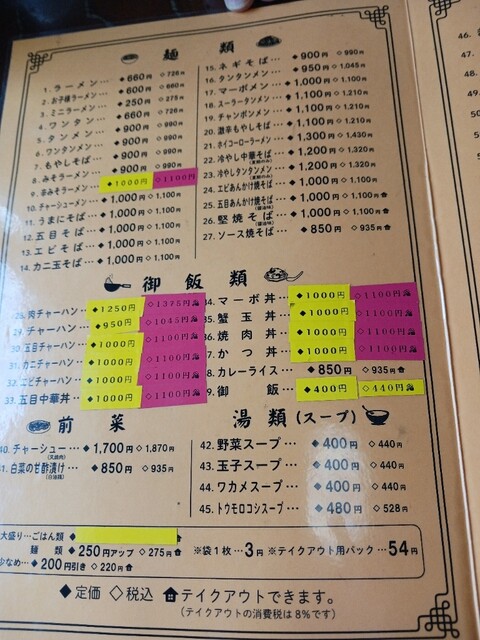 麺 類
1. ラーメン… ◆660円 ◇726円
2. お子様ラーメン… ◆600円 ◇660円
3. ミニラーメン… ◆250円 ◇275円
4. ワンタン… ◆660円 ◇726円
5. タンメン… ◆900円 ◇990円
6. ワンタンメン… ◆900円 ◇990円
7. もやしそば… ◆900円 ◇990円
8. みそラーメン… ◆900円 ◇990円
9. 辛みそラーメン… ◆1000円 ◇1100円
10. チャーシューメン… ◆1,000円 ◇1,100円
11. うまにそば… ◆1,000円 ◇1,100円
12. 五目そば… ◆1,000円 ◇1,100円
13. エビそば… ◆1,000円 ◇1,100円
14. カニ玉そば… ◆1,000円 ◇1,100円
15. ネギそば… ◆900円 ◇990円
16. タンタンメン… ◆950円 ◇1,045円
17. マーボメン… ◆1,000円 ◇1,100円
18. スーラータンメン… ◆1,100円 ◇1,210円
19. チャンポンメン… ◆1,100円 ◇1,210円
20. 激辛もやしそば… ◆1,100円 ◇1,210円
21. ホイコーローラーメン… ◆1,300円 ◇1,430円
22. 冷やし中華そば… ◆1,200円 ◇1,320円
(夏期のみ)
23. 冷やしタンタンメン… ◆1,200円 ◇1,320円
(夏期のみ)
24. エビあんかけ焼そば… ◆1,000円 ◇1,100円
25. 五目あんかけ焼そば… ◆1,000円 ◇1,100円
(醤油味)
26. 堅焼そば… ◆1,000円 ◇1,100円
(醤油味)
27. ソース焼そば… ◆850円 ◇935円
御 飯 類
28. 肉チャーハン… ◆1250円 ◇1375円
29. チャーハン… ◆950円 ◇1045円
30. 五目チャーハン… ◆1000円 ◇1100円
31. カニチャーハン… ◆1000円 ◇1100円
32. エビチャーハン… ◆1000円 ◇1100円
33. 五目中華丼… ◆1000円 ◇1100円
34. マーボ丼… ◆1000円 ◇1100円
35. 蟹玉丼… ◆1000円 ◇1100円
36. 焼肉丼… ◆1000円 ◇1100円
7. かつ丼… ◆1000円 ◇1100円
8. カレーライス… ◆850円 ◇935円
9. 御飯… ◆400円 ◇440円
前 菜
40. チャーシュー… ◆1,700円 ◇1,870円
41. 白菜の甘酢漬け… ◆850円 ◇935円
湯類(スープ)
42. 野菜スープ… ◆400円 ◇440円
43. 玉子スープ… ◆400円 ◇440円
44. ワカメスープ… ◆400円 ◇440円
45. トウモロコシスープ… ◆480円 ◇528円
大盛り…ごはん類 ◆
麺 類 ◆250円アップ ◇275円
少なめ… ◆200円引き ◇220円
※袋1枚…3円 ※テイクアウト用パック…54円
◆定価 ◇税込 テイクアウトできます。
(テイクアウトの消費税は8%です)
46.
47.
48
49
50
5